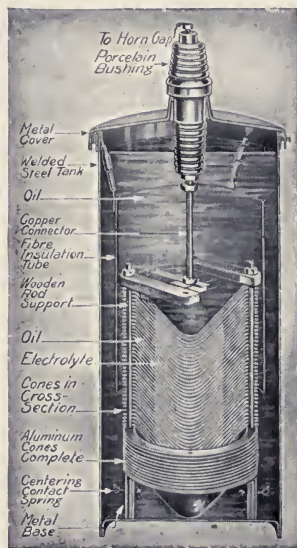 To Horn Gap
Porcelain
Bushing
Metal
Cover
Welded
Steel Tank
Oil
Copper
Connector
Fibre
Insulation
Tube
Wooden
Rod
Support
Oil
Electrolyte
Cones in
Cross-
Section
Aluminum
Cones
Complete
Centering
Contact
Spring
Metal
Base